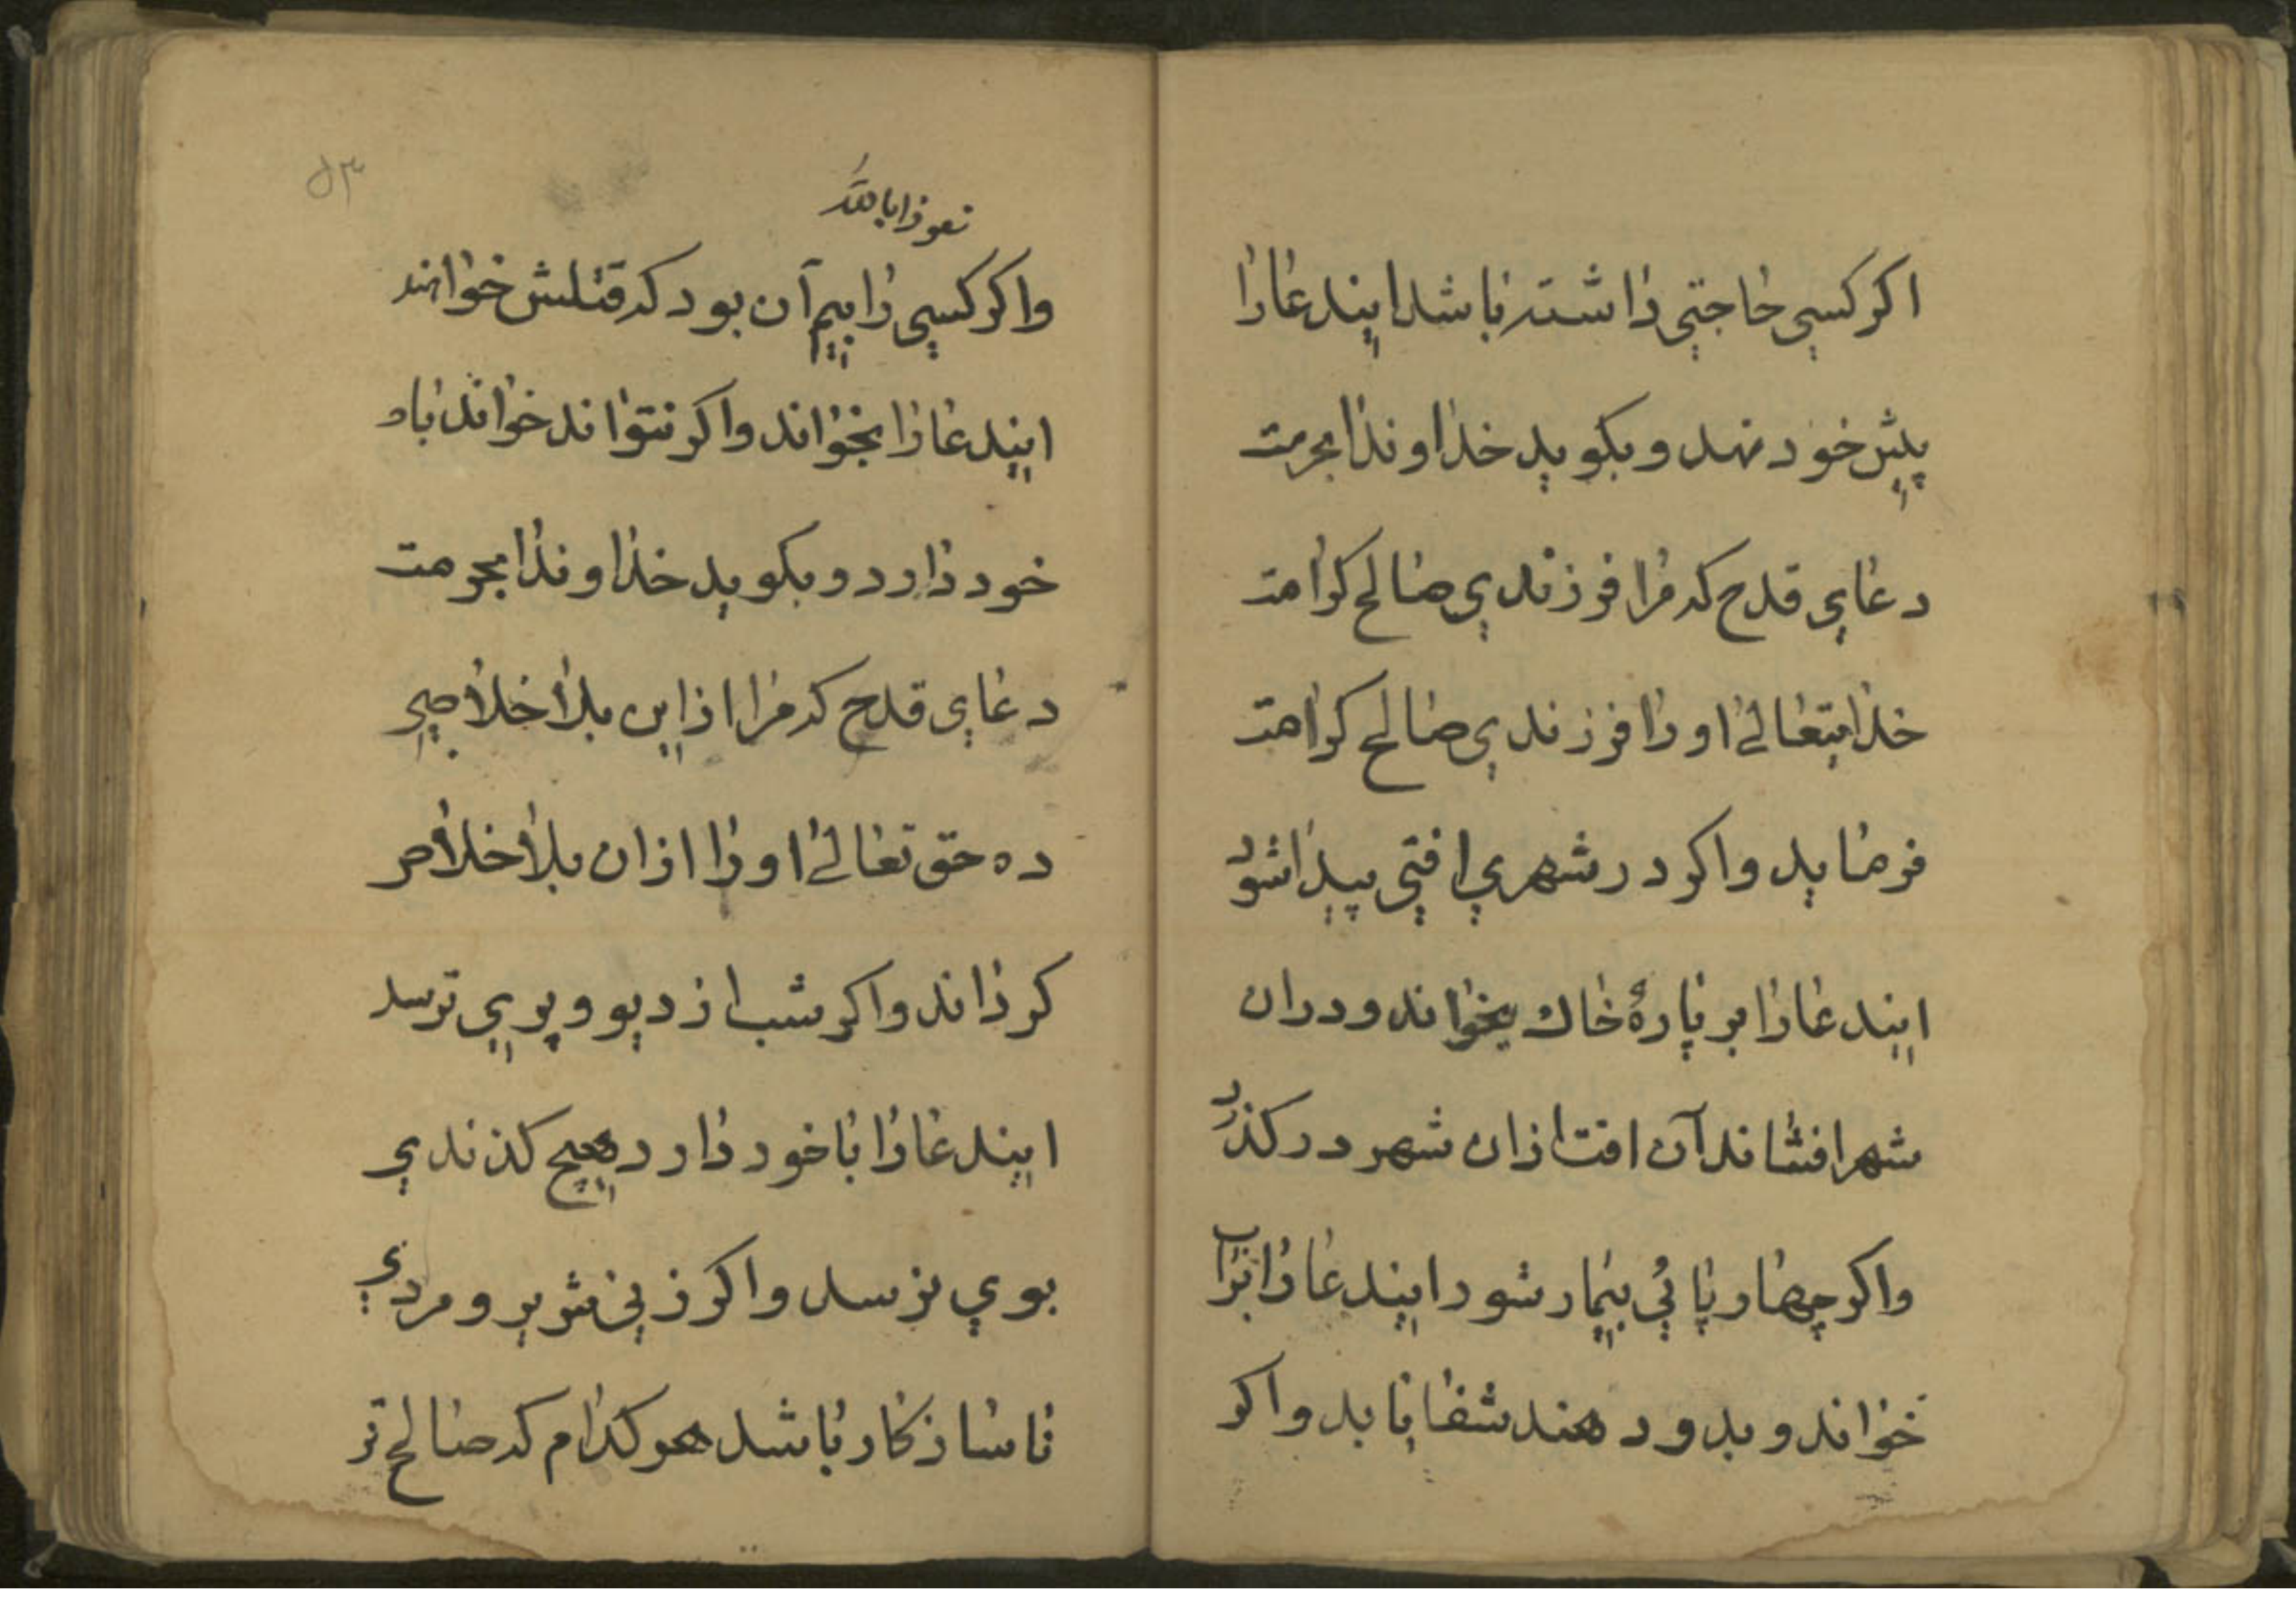 اکر کسي حاجتي داشته باشد ایندعارا
پیش خود نهد و بکوید خداوندا بحرمت
دعاي قدح که مرا فرزندي صالح کرامت
خدایتعالی اورا فرزندي صالح کرامت
فرماید واکر در شهري افتي پیدا شود
ایندعارا بر پارهٔ خاك بخواند و دران
شهر افشاند آن افت ازان شهر درکذرد
واکر چهارپائي بیمار شود ایندعارا براب
خواند و بدو دهند شفا یابد واکر
نعوذابالله
واکر کسي را بیم آن بود که قتلش خواهند
ایندعارا بخواند واکر نتواند خواند باو
خود دارد و بکوید خداوندا بحرمت
دعاي قدح که مرا ازاین بلا خلاصي
ده حق تعالی اورا ازان بلا خلاص
کرداند واکر شب از دیو و پري ترسد
ایندعارا باخود دارد هیچ کذندي
بوي نرسد واکر زني شریر و مردي
ناسازکار باشد هرکدام که صالح تر
۵۳